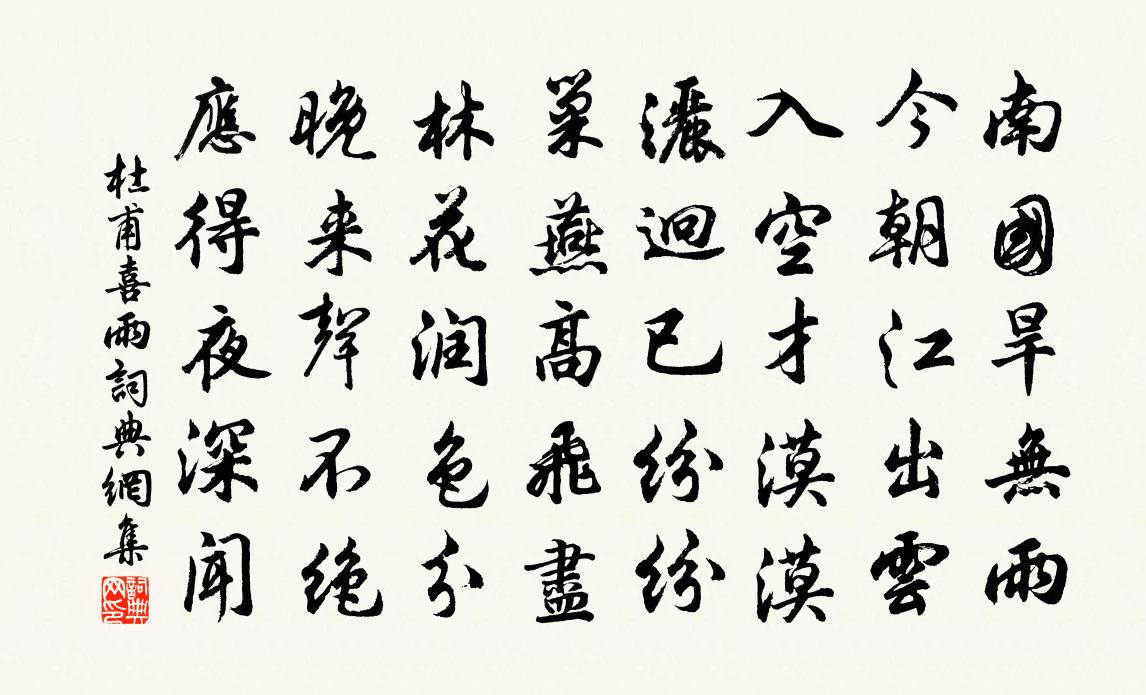 南國旱無雨
今朝江出雲
入空才漠漠
灑迥已紛紛
巢燕高飛盡
林花润色分
晚来聲不绝
應得夜深聞
杜甫喜雨詞典網集
詞典网印